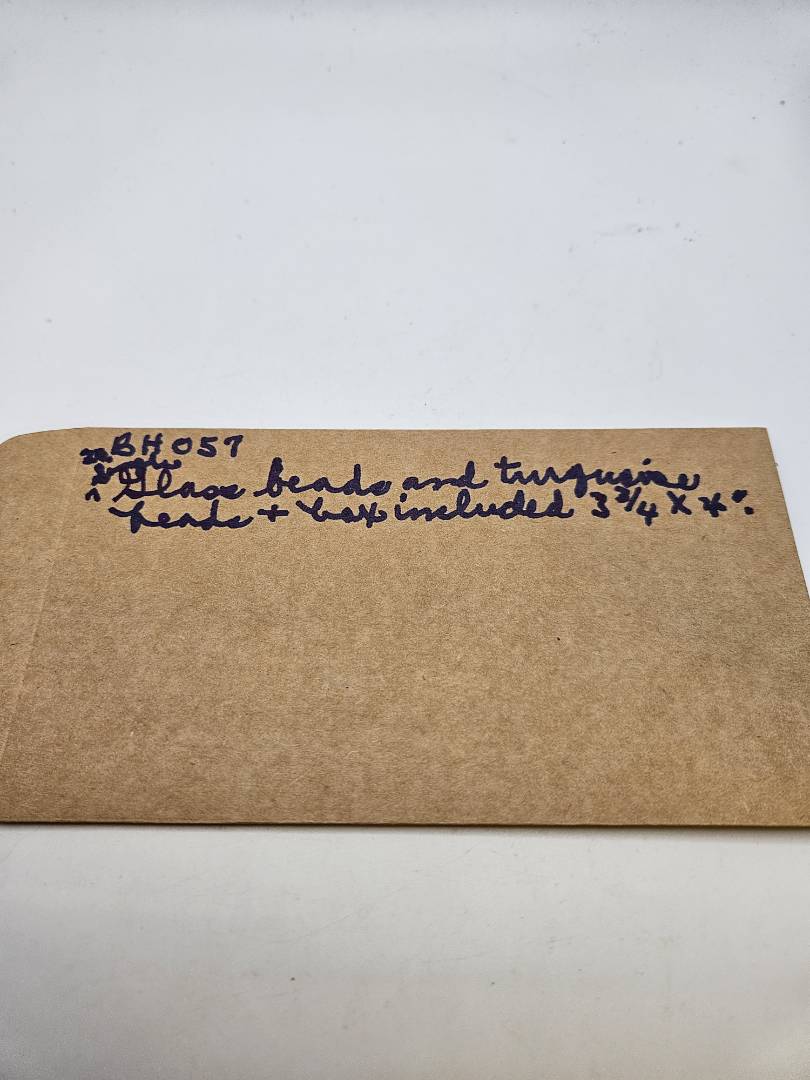 BH057
Glass beads and turquoise
beads + box included 3 3/4 X